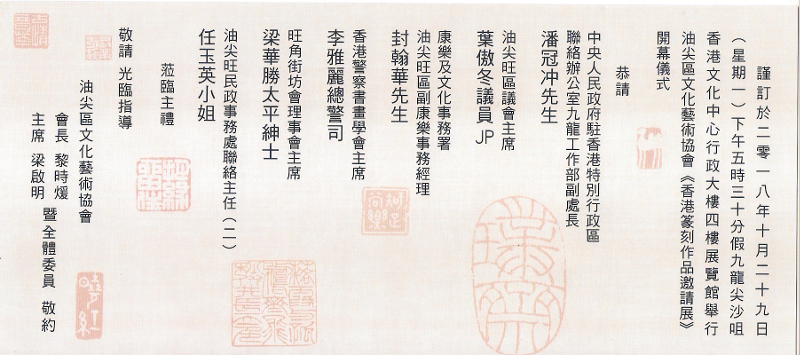 謹訂於二零一八年十月二十九日
（星期一）下午五時三十分假九龍尖沙咀
香港文化中心行政大樓四樓展覽館舉行
油尖區文化藝術協會《香港篆刻作品邀請展》
開幕儀式
恭請
中央人民政府駐香港特別行政區
聯絡辦公室九龍工作部副處長
潘冠冲先生
油尖旺區議會主席
葉傲冬議員 JP
康樂及文化事務署
油尖旺區副康樂事務經理
封翰華先生
香港警察書畫學會主席
李雅麗總警司
旺角街坊會理事會主席
梁華勝太平紳士
油尖旺民政事務處聯絡主任（二）
任玉英小姐
蒞臨主禮
敬請 光臨指導
油尖區文化藝術協會
會長 黎時煖
主席 梁啟明
暨全體委員 敬約